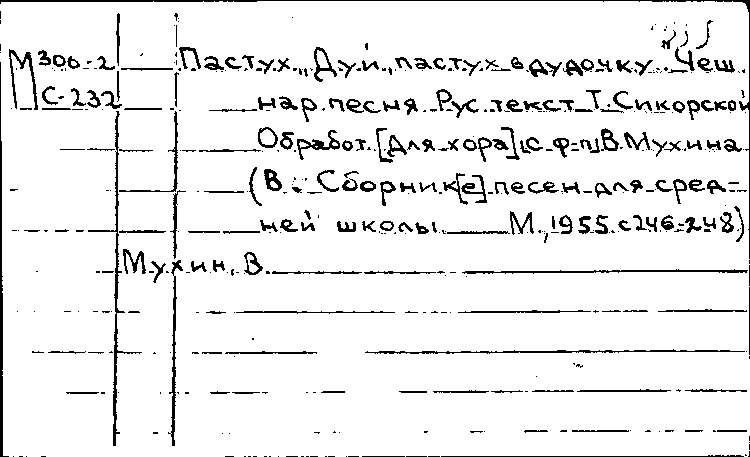 М 306-2 Пастух. „Дуй, пастух в дудочку..." Чеш.
С-232 нар. песня. Рус. текст Т. Сикорской
Обработ. [для хора] с ф-п В. Мухина
(В: Сборник[е] песен для сред-
ней школы М., 1955. с 246-248)
Мухин, В.